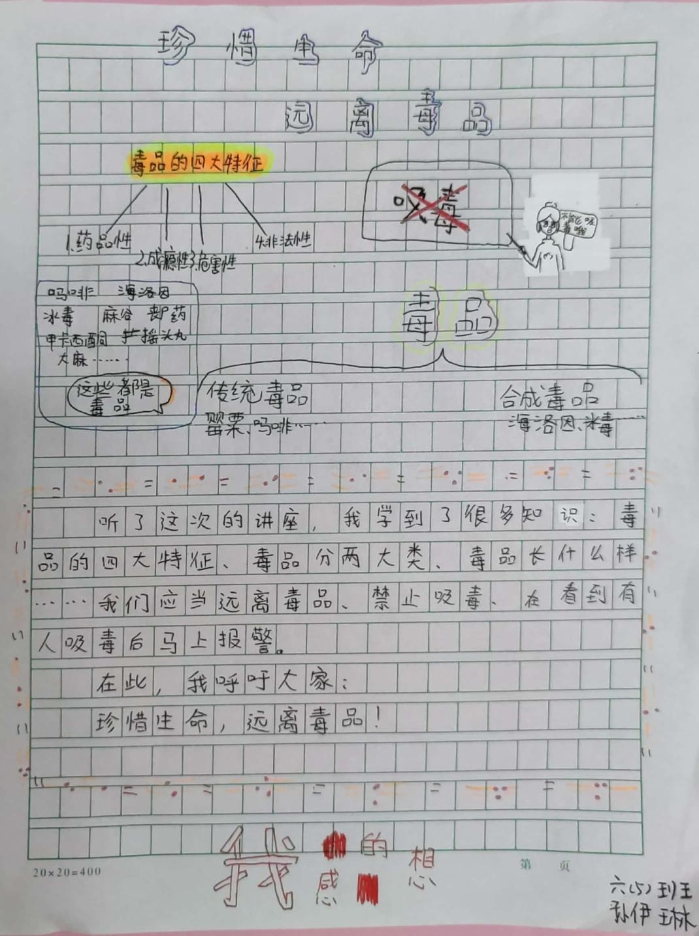 珍惜生命
远离毒品
毒品的四大特征
吸毒
1.药品性
2.成瘾性
3.危害性
4.非法性
吗啡 海洛因
冰毒 麻谷 卸药
甲卡西酮 摇头丸
大麻……
这些都是
毒品
毒品
传统毒品
罂粟、吗啡……
合成毒品
海洛因、冰毒……
听了这次的讲座，我学到了很多知识：毒
品的四大特征、毒品分两大类、毒品长什么样
……我们应当远离毒品、禁止吸毒、在看到有
人吸毒后马上报警。
在此，我呼吁大家：
珍惜生命，远离毒品！
我的感想
20×20=400
第 页
六(5)班王
孙伊 琳